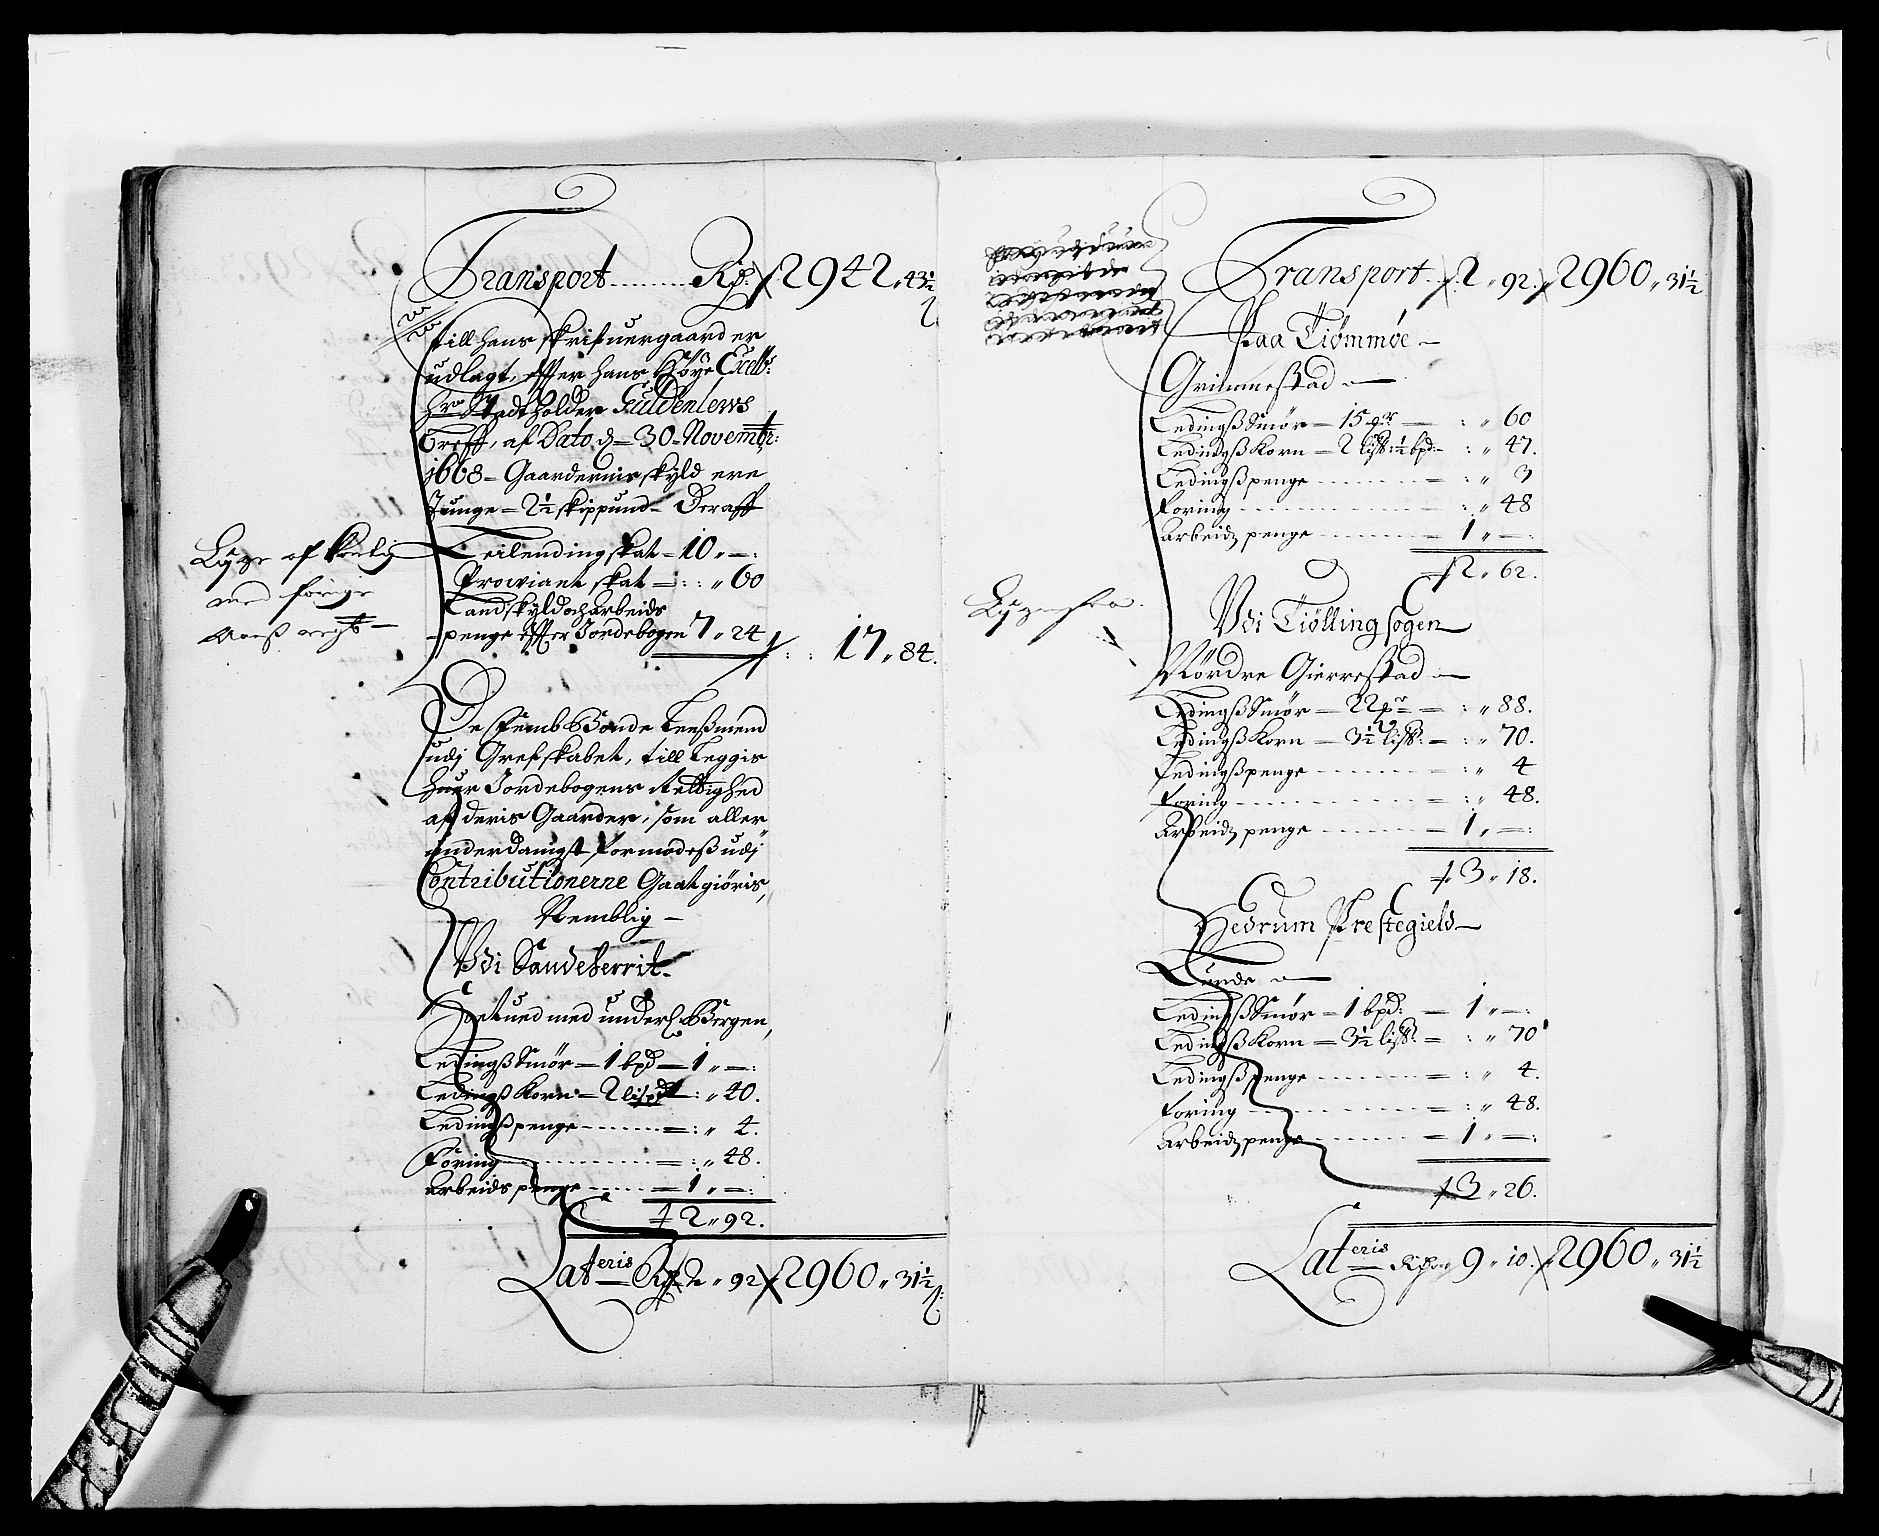 Transport ........ Rdr: 2942 „ 43½
till hans skrifuergaard er
udlagt, effter hans Höye Excell:
Hr Stadtholder Güldenlews
Breff, af Dato d= 30 Novembr:
1668 = Gaardernis skyld ere
Tunge = 2½ skippund = Deraff
Leilendingskat = 10 „ —:
Proviant skat —: : „ 60
Landskyld och arbeids
penge effter Jordebogen 7 „ 24
17 „ 84.
med forige
De Femb Bonde Leensmend
udj Grefskabet, till Leggis
huer Jordebogens Rettighed
af deris Gaarder, som aller
underdanigst formodeß udj
Contributionerne Gaat giöris,
Nemblig —
Vdi Sandeherrit
med underl: Bergen,
Ledingß Smör — 1 bpd — 1 „ —:
Ledingß Korn — 2 lispd — : „ 40.
Ledingß penge ........ = : „ 4.
Föring ............ = : „ 48.
Arbeids penge ...... = 1 „ —:
2 „ 92.
Lateris Rdr 2 „ 92 2960 „ 31½
Transport 2 „ 92. 2960 „ 31½
Paa Tiömmöe —
Grimmestad —
Ledingß Smör — 15 — : „ 60
Ledingß Korn — 2 lisß ½ bpd: — : „ 47.
Ledingß penge ........ = : „ 3
Foring ............ = : „ 48
Arbeidz penge ........ = 1 „ —:
2 „ 62.
Vdi Tiölling sogen
Nördre Gierrestad —
Ledingß Smör — 22 — : „ 88.
Ledingß Korn — 3½ lisß: — : „ 70.
Ledingß penge ........ = : „ 4
Foring ............ = : „ 48.
Arbeidz penge ........ = 1 „ —:
3 „ 18.
Hedrum Prestegield —
Lunde —
Ledingß Smör — 1 bpd: — 1 „ —:
Ledingß Korn — 3½ lisß: — : „ 70
Ledingß penge ........ = : „ 4.
Foring ............ = : „ 48.
Arbeidz penge ........ = 1 „ —:
3 „ 26.
Lateris Rdr 9 „ 10. 2960 „ 31½